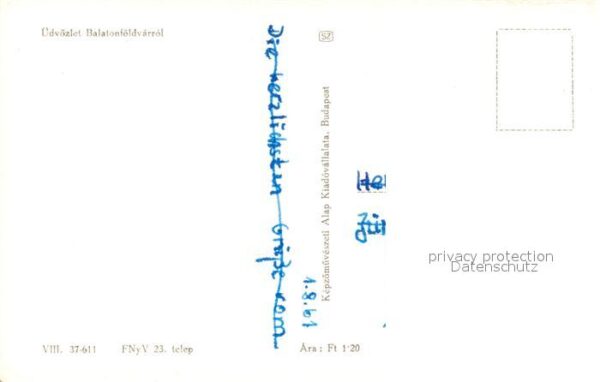 Üdvözlet Balatonföldvárról
Die herzlichsten Grüße vom
1.8.61
SZ
Képzőművészeti Alap Kiadóvállalata, Budapest
privacy protection
Datenschutz
VIII. 37-611 FNyV 23. telep
Ára: Ft 1·20